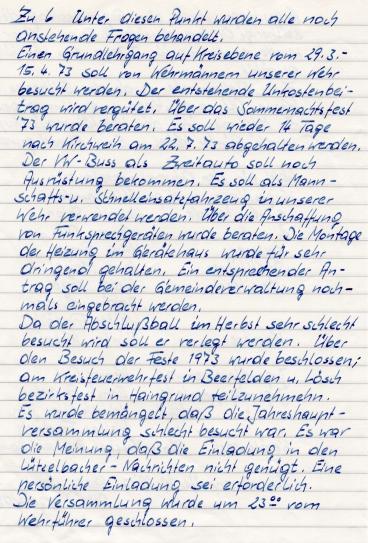 Zu 6 Unter diesen Punkt wurden alle noch
anstehende Fragen behandelt.
Einen Grundlehrgang auf Kreisebene vom 29.3.-
15.4.73 soll von Wehrmännern unserer Wehr
besucht werden. Der entstehende Unkostenbei-
trag wird vergütet. Über das Sommernachtsfest
'73 wurde beraten. Es soll wieder 14 Tage
nach Kirchweih am 22.7.73 abgehalten werden.
Der VW-Buss als Zweitauto soll noch
Ausrüstung bekommen. Es soll als Mann-
schafts-u. Schnelleinsatzfahrzeug in unserer
Wehr verwendet werden. Über die Anschaffung
von Funksprechgeräten wurde beraten. Die Montage
der Heizung im Gerätehaus wurde für sehr
dringend gehalten. Ein entsprechender An-
trag soll bei der Gemeindeverwaltung noch-
mals eingebracht werden.
Da der Abschlußball im Herbst sehr schlecht
besucht wird soll er verlegt werden. Über
den Besuch der Feste 1973 wurde beschlossen;
am Kreisfeuerwehrfest in Beerfelden u. Lösch
bezirksfest in Haingrund teilzunehmehn.
Es wurde bemängelt, daß die Jahreshaupt-
versammlung schlecht besucht war. Es war
die Meinung, daß die Einladung in den
Lützelbacher-Nachrichten nicht genügt. Eine
persönliche Einladung sei erforderlich.
Die Versammlung wurde um 23⁰⁰ vom
Wehrführer geschlossen.